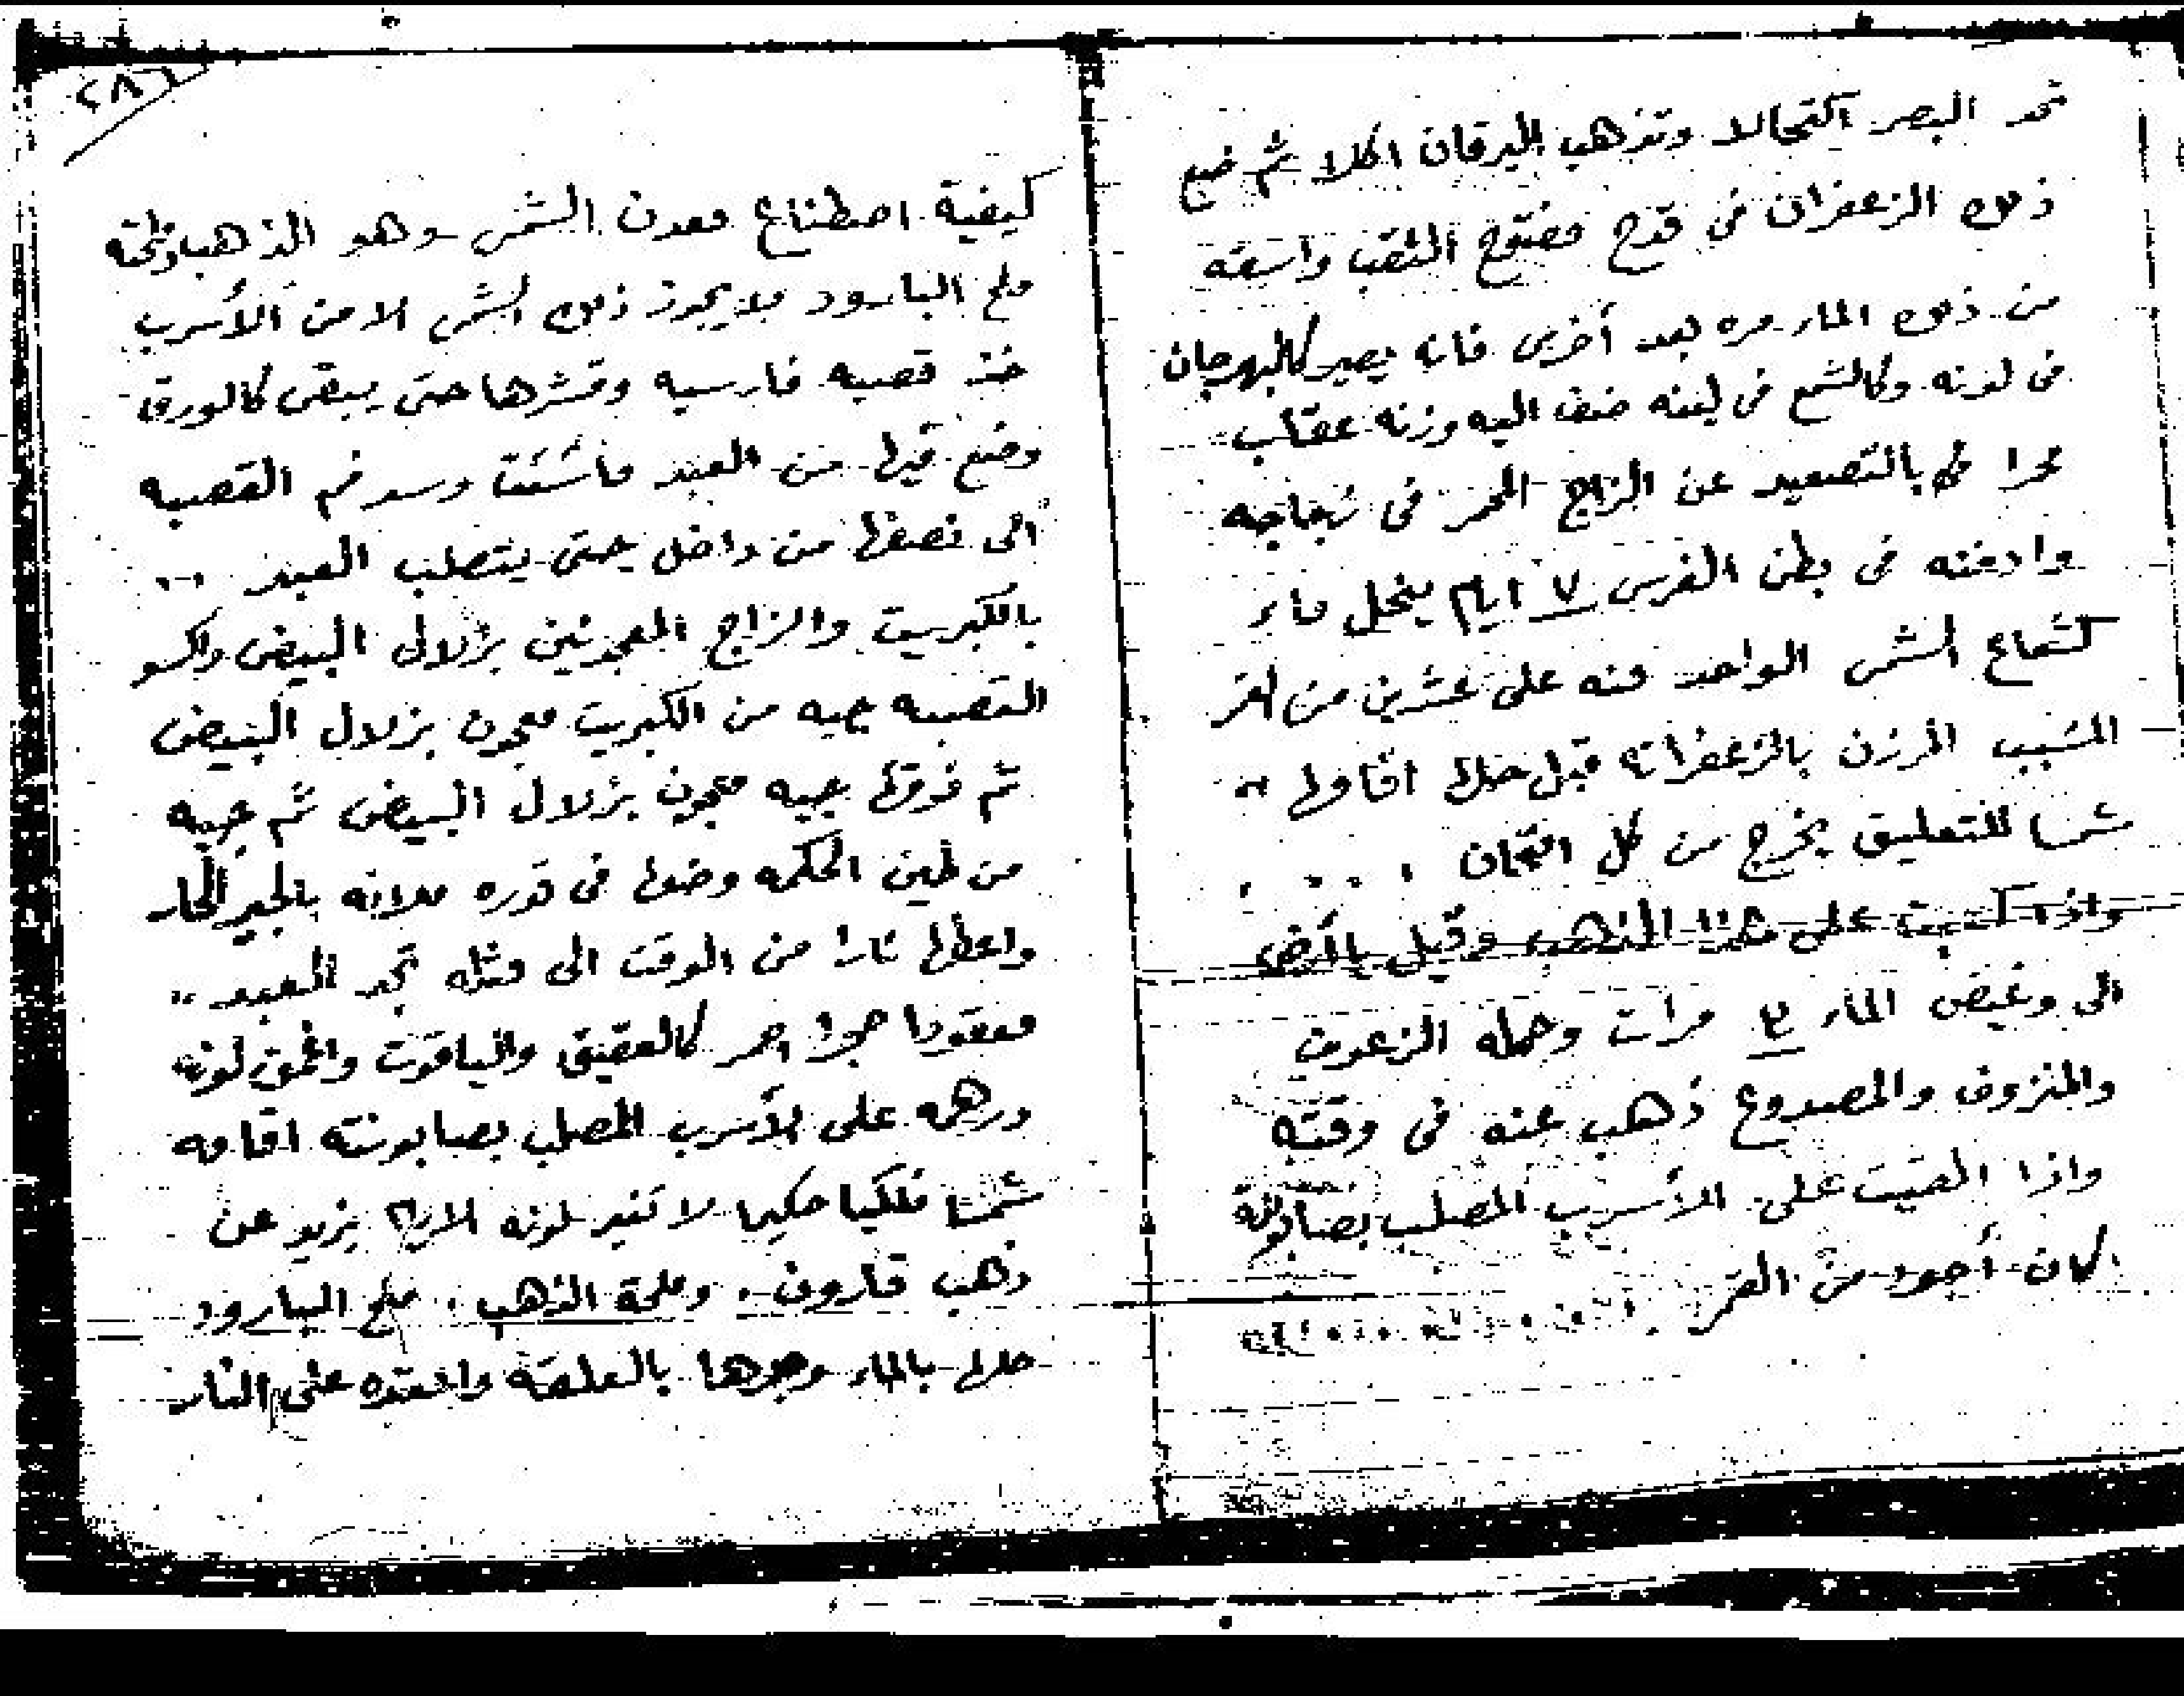 تحد البصر اكتحالا وتذهب اليرقان اكلا ثم ضع
ذلك الزعفران في قدح مفتوح الثقب واسقه
من ذلك الماء مره بعد أخرى فانه يصير كالبهرجان
في لونه وكالشمع في لينه ضف اليه وزنه عقاب
بالتصعيد عن الزاج المحمر في زجاجه
وادفنه في بطن الفرس ٧ ايام ينحل ماء
كشعاع الشمس الواحد منه على عشرين من القمر
المشبب المرزن بالزعفران قبل حلها اقامها
شمسا للتعليق يخرج من كل امتحان
واذا كتبت على هذا الذهب وقيل يا أرض
الى وغيض الماء ٣ مرات وحمله الزعوف
والمنزوف والمصدوع ذهب عنه في وقته
واذا القيت على الأسرب المصلب بصابونة
كان أجود من القمر
٢٨٦
كيفية اصطناع معدن الشمس وهو الذهب
ملح البارود ولا يجوز ذلك الشمس الا من الأسرب
خذ قصبه فارسيه وقشرها حتى يبقى كالورق
وضع فيها من العبد ماشئت وسد فم القصبه
الى نصفها من داخل حتى يتصلب العبد
بالكبريت والزاج المعجونين بزلال البيض واكسو
القصبه جبه من الكبريت معجون بزلال البيض
ثم فوقها جبه معجون بزلال البيض ثم جبه
من طين الحكمه وضعها في قدره ملانه بالجير الحار
واعطها نارا من الوقت الى مثله تجد العبد
معقودا حجرا احمر كالعقيق والياقوت والق لونه
درهمه على الأسرب المصلب بصابونته اقامه
شمسا فلكيا حكيما لا تغير لونه يزيد عن
ذهب قارون. وملحة الذهب. ملح البارود
حلها بالماء وجرها بالعلقة واعقده على النار